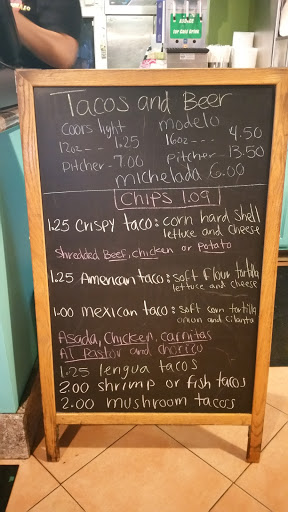 Tacos and Beer
Coors light modelo
12oz -- 1.25 16oz --- 4.50
Pitcher - 7.00 Pitcher - 13.50
michelada 6.00
CHIPS 1.09
1.25 Crispy taco: corn hard shell
lettuce and cheese
Shredded Beef, chicken or Potato
1.25 American taco: soft flour tortilla
lettuce and cheese
1.00 mexican taco: soft corn tortilla
onion and cilantro
Asada, Chicken, Carnitas
Al Pastor and chorico
1.25 lengua tacos
2.00 shrimp or fish tacos
2.00 mushroom tacos